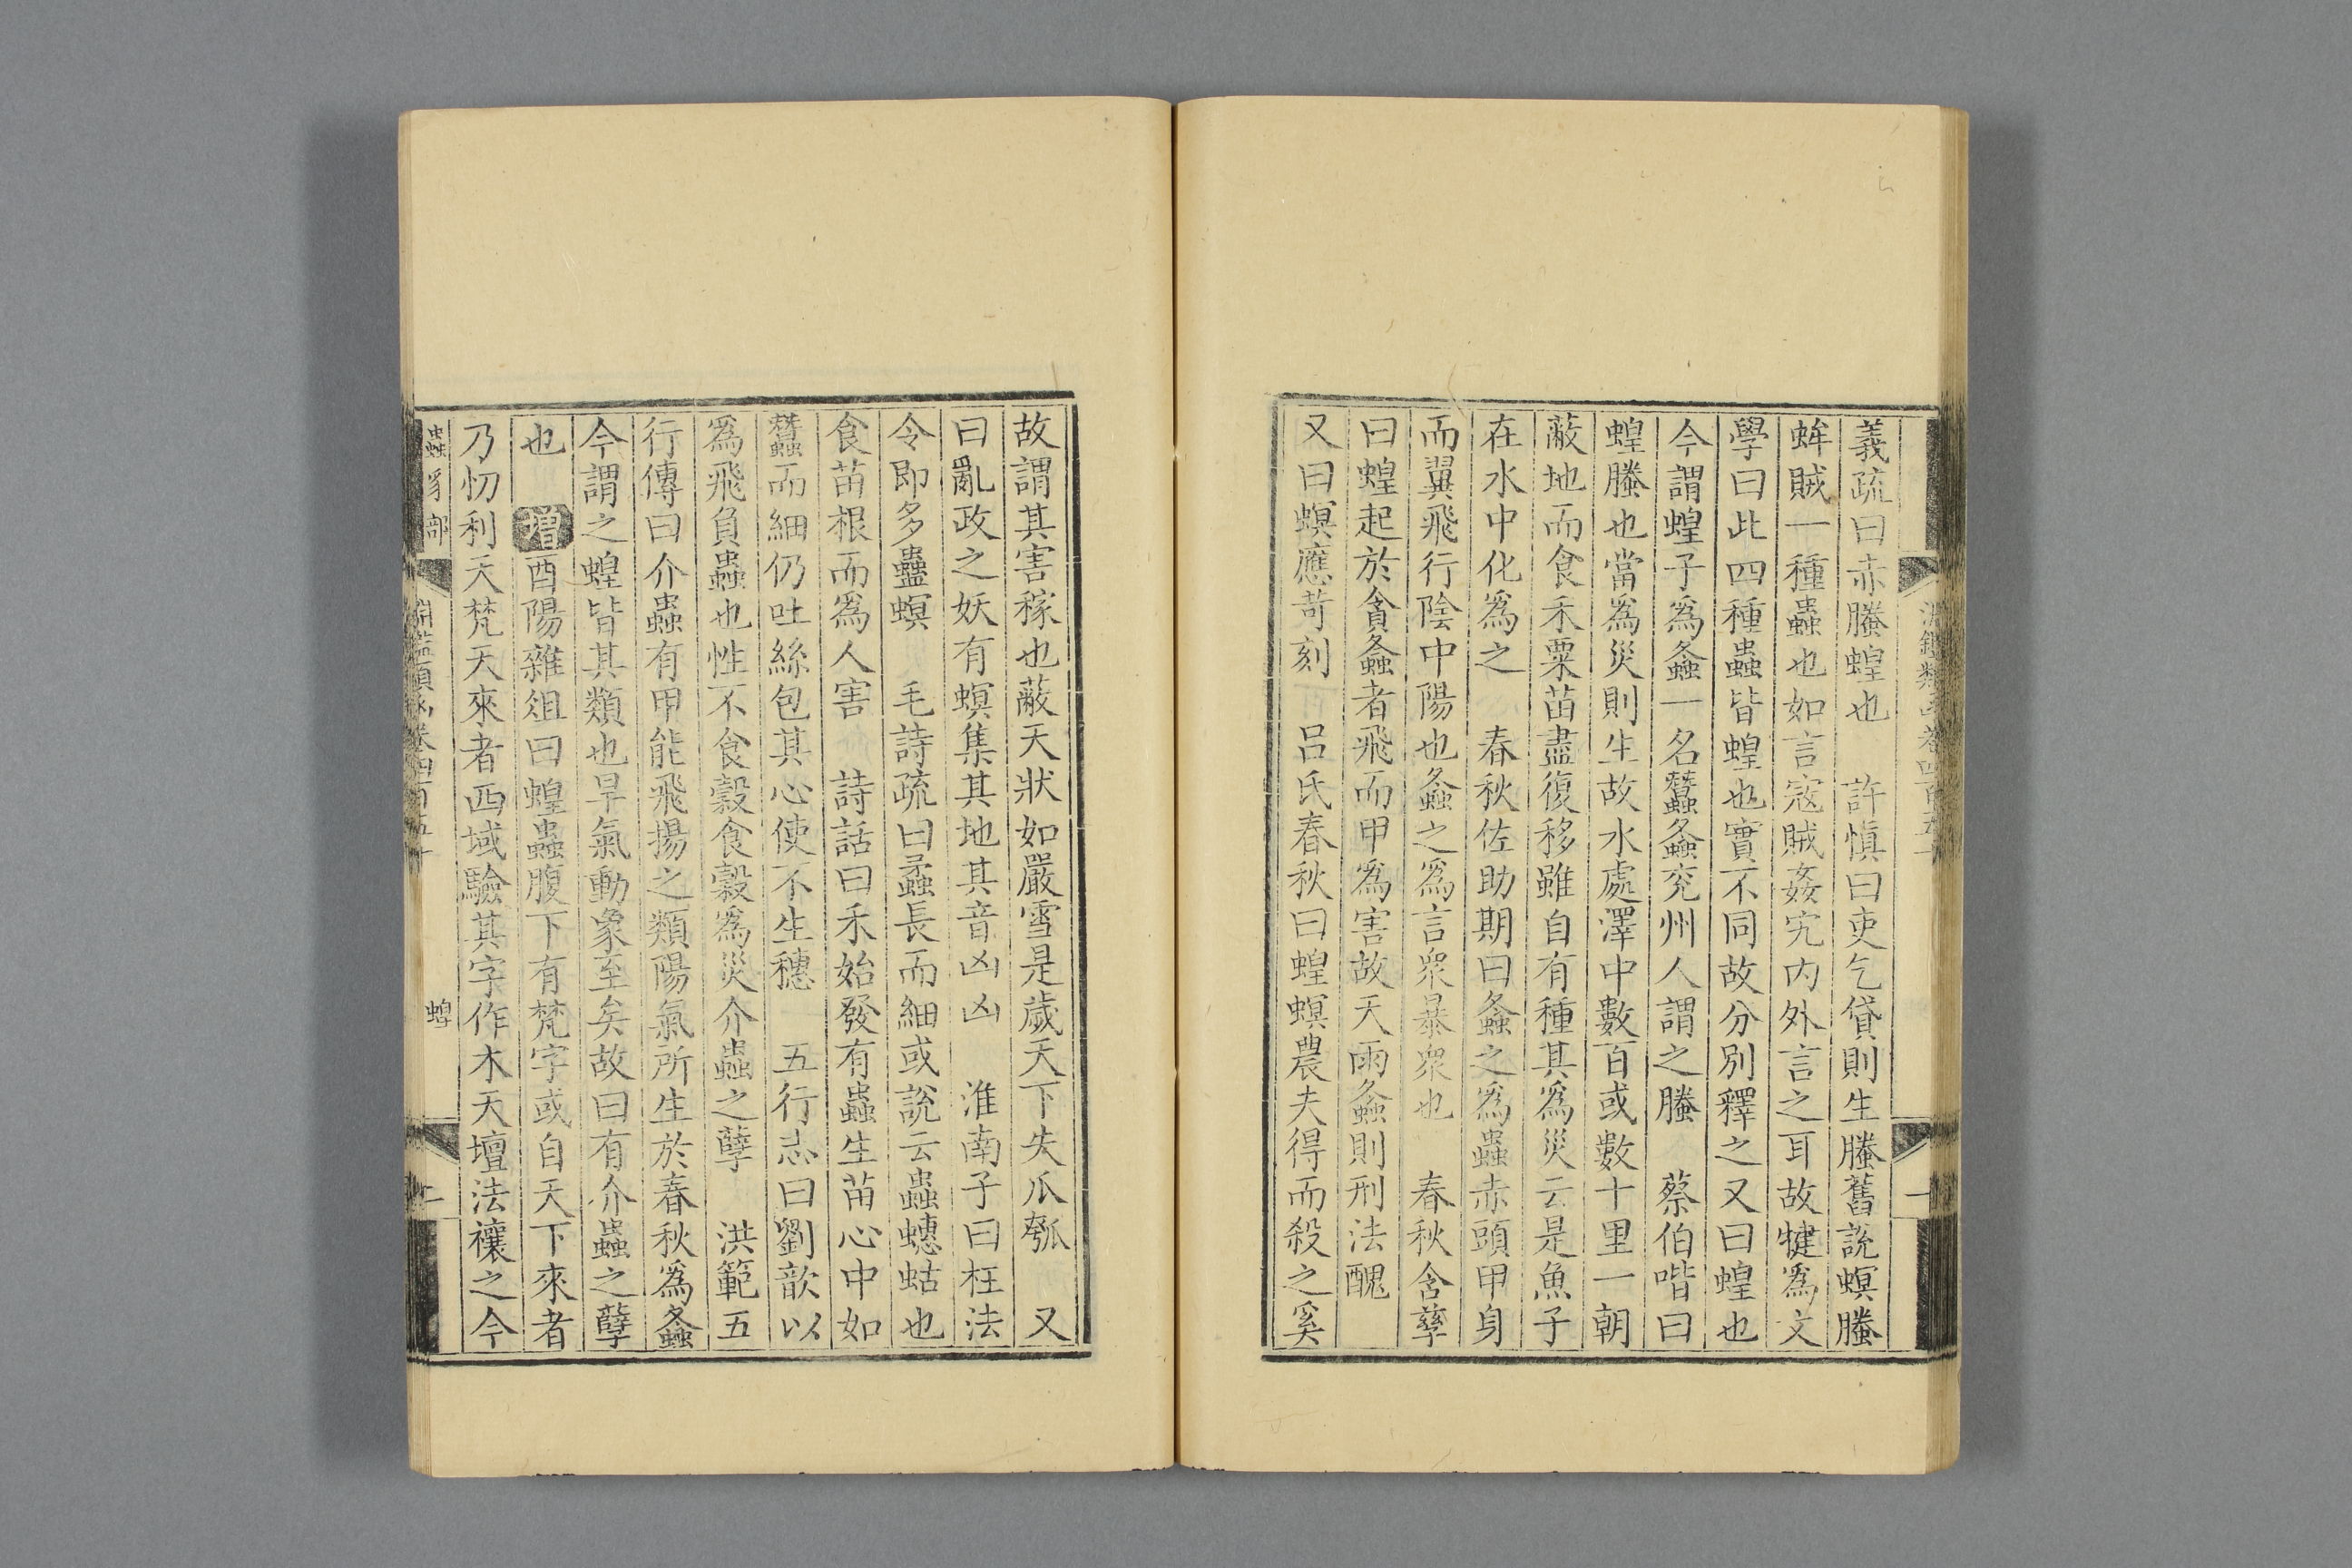 義疏曰赤螣蝗也　許慎曰吏乞貸則生螣舊說螟螣
蛑賊一種蟲也如言寇賊姦宄内外言之耳故犍爲文
學曰此四種蟲皆蝗也實不同故分別釋之又曰蝗也
今謂蝗子爲螽一名蠶螽兖州人謂之螣　蔡伯喈曰
蝗螣也當爲災則生故水處澤中數百或數十里一朝
蔽地而食禾粟苗盡復移雖自有種其爲災云是魚子
在水中化爲之　春秋佐助期曰螽之爲蟲赤頭甲身
而翼飛行陰中陽也螽之爲言衆暴衆也　春秋含孳
曰蝗起於貪螽者飛而甲爲害故天雨螽則刑法醜
又曰螟應苛刻　呂氏春秋曰蝗螟農夫得而殺之奚
故謂其害稼也蔽天狀如嚴雪是歲天下失瓜瓠　又
曰亂政之妖有螟集其地其音凶凶　淮南子曰枉法
令即多蠱螟　毛詩疏曰蟊長而細或說云蟲蟪蛄也
食苗根而爲人害　詩話曰禾始發有蟲生苗心中如
蠶而細仍吐絲包其心使不生穗　五行志曰劉歆以
爲飛負蟲也性不食穀食穀爲災介蟲之孽　洪範五
行傳曰介蟲有甲能飛揚之類陽氣所生於春秋爲螽
今謂之蝗皆其類也旱氣動象至矣故曰有介蟲之孽
也　增酉陽雜俎曰蝗蟲腹下有梵字或自天下來者
乃忉利天梵天來者西域驗其字作木天壇法禳之今
蟲豸部　淵鑑類函卷四百五十　蝗　二